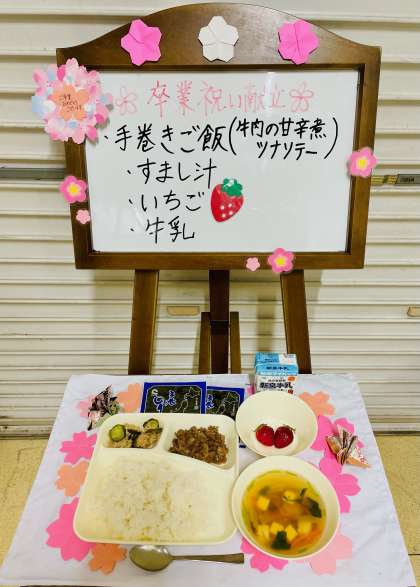 卒業祝い献立
・手巻きご飯(牛肉の甘辛煮
ツナソテー)
・すまし汁
・いちご
・牛乳